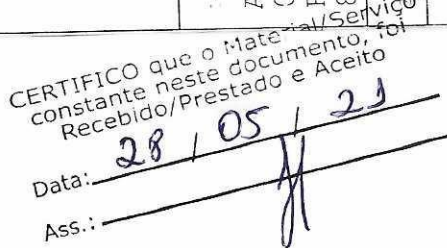 CERTIFICO que o Material/Serviço
constante neste documento, foi
Recebido/Prestado e Aceito
Data: 28 / 05 / 21
Ass.: